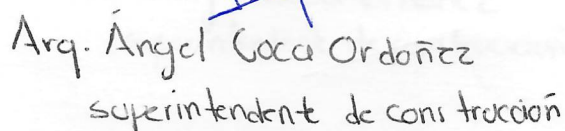 Arq. Ángel Coca Ordoñez
superintendente de construcción